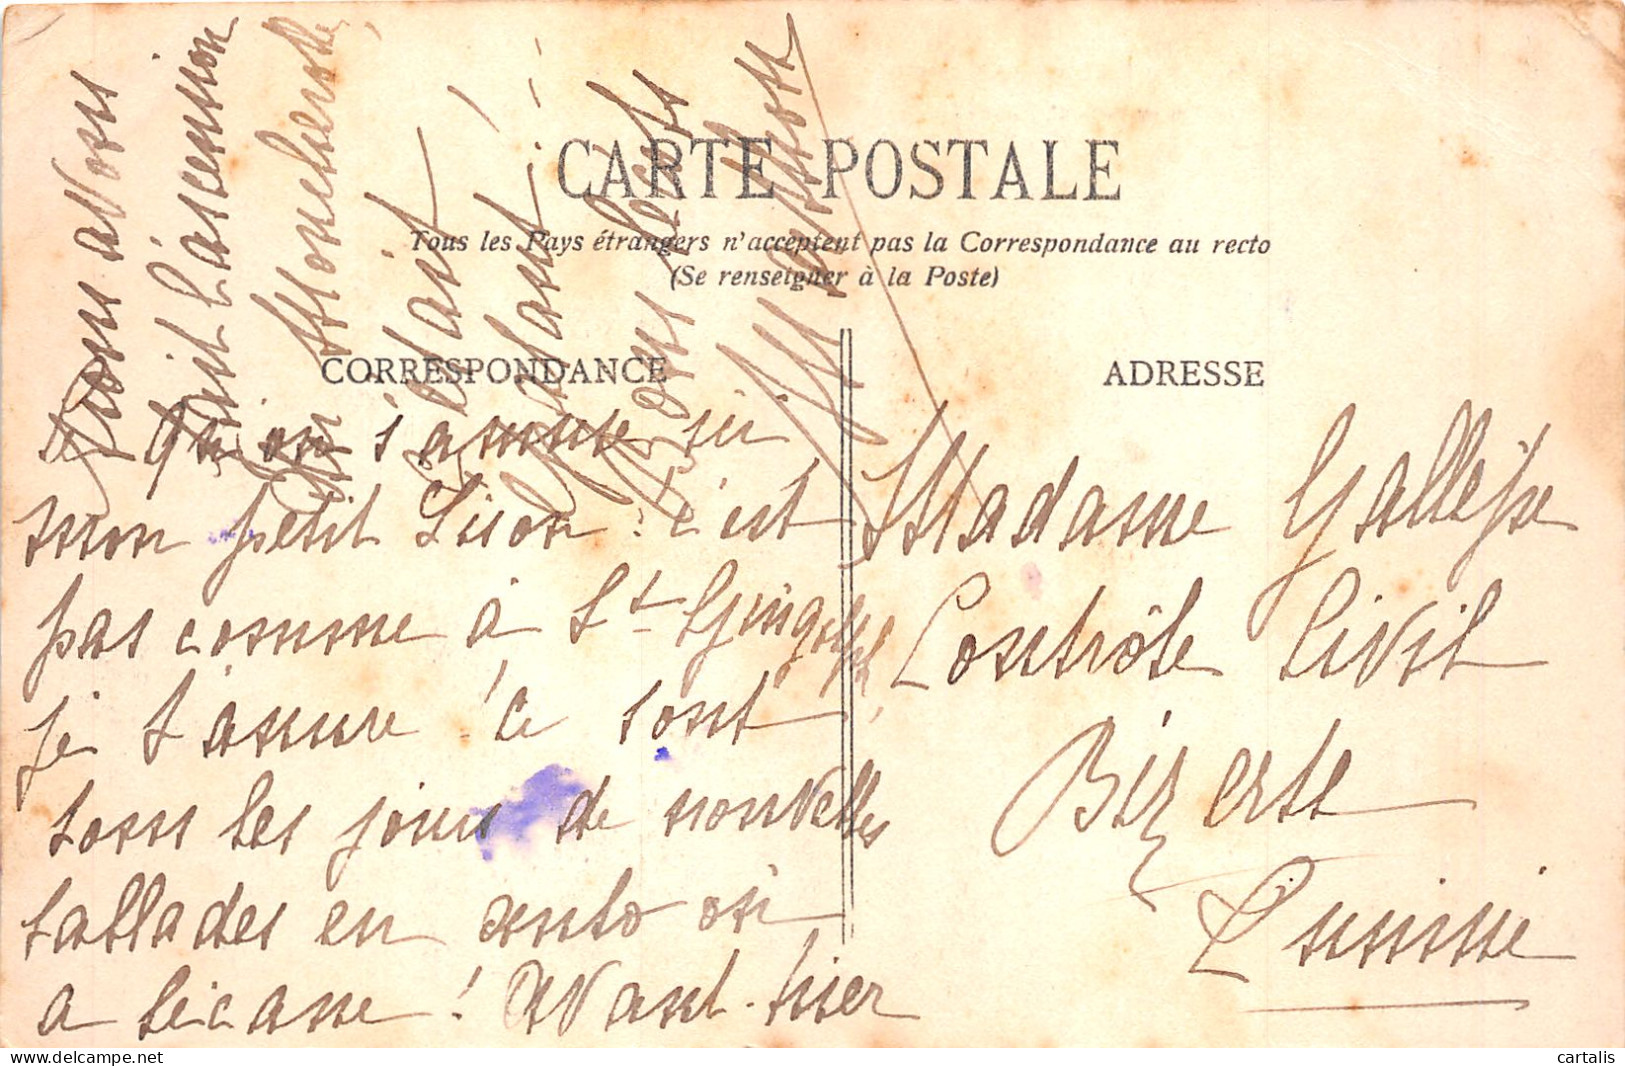 CARTE POSTALE
Tous les Pays étrangers n'acceptent pas la Correspondance au recto
(Se renseigner à la Poste)
CORRESPONDANCE
ADRESSE
qu'on s'amuse ici
mon petit Lison : c'est
pas comme à St Gingolph
je t'assure ! ce sont
tous les jours de nouvelles
ballades en auto on
a bécane ! Avant-hier
nous avons
fait l'ascension
Moncherotte
c'était
épatant !
Bons becs
Madame Galleppe
Contrôle Civil
Bizerte
Tunisie
cartalis